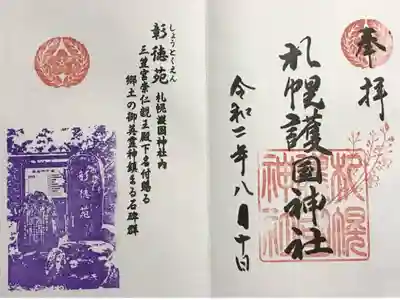 奉拝
札幌護国神社
令和二年八月十日
しょうとくえん
彰徳苑
札幌護国神社内
三笠宮崇仁親王殿下名付賜る
郷土の御英霊神鎮まる石碑群
彰徳苑